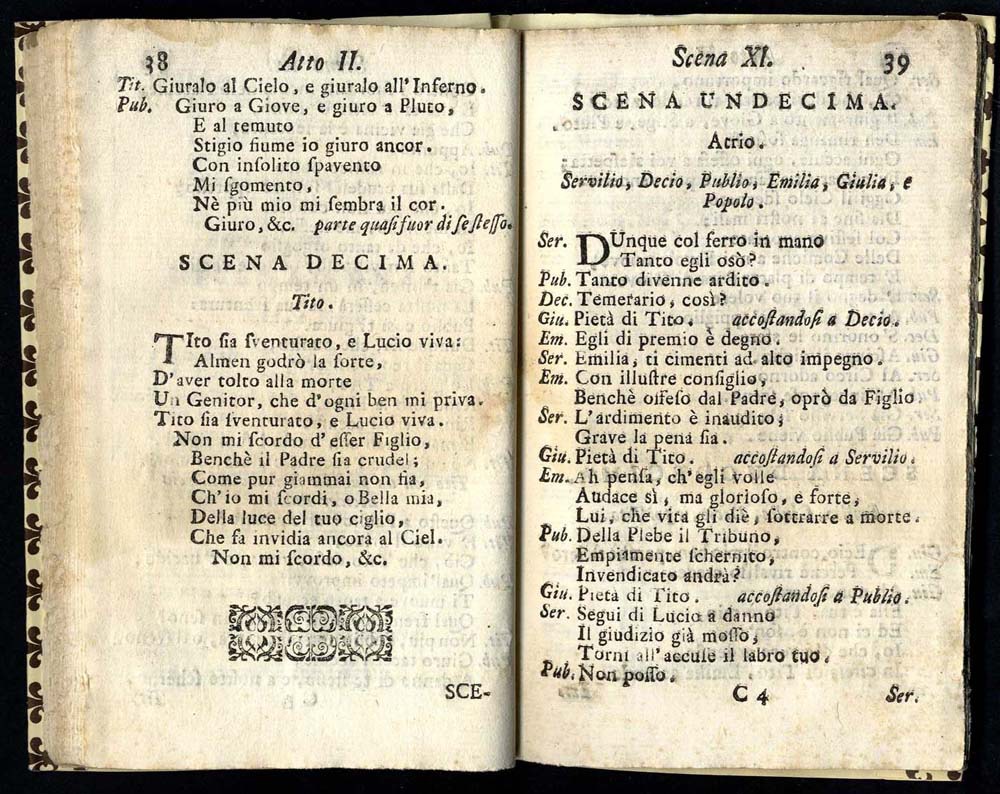 38 Atto II.
Tit. Giuralo al Cielo, e giuralo all'Inferno.
Pub. Giuro a Giove, e giuro a Pluto,
E al temuto
Stigio fiume io giuro ancor.
Con inſolito ſpavento
Mi ſgomento,
Nè più mio mi ſembra il cor.
Giuro, &c. parte quaſi fuor di ſe ſteſſo.
SCENA DECIMA.
Tito.
TIto ſia ſventurato, e Lucio viva:
Almen godrò la ſorte,
D'aver tolto alla morte
Un Genitor, che d'ogni ben mi priva.
Tito ſia ſventurato, e Lucio viva.
Non mi ſcordo d'eſſer Figlio,
Benchè il Padre ſia crudel;
Come pur giammai non fia,
Ch'io mi ſcordi, o Bella mia,
Della luce del tuo ciglio,
Che fa invidia ancora al Ciel.
Non mi ſcordo, &c.
SCE-
Scena XI. 39
SCENA UNDECIMA.
Atrio.
Servilio, Decio, Publio, Emilia, Giulia, e
Popolo.
Ser. DUnque col ferro in mano
Tanto egli osò?
Pub. Tanto divenne ardito.
Dec. Temerario, così?
Giu. Pietà di Tito. accoſtandoſi a Decio.
Em. Egli di premio è degno.
Ser. Emilia, ti cimenti ad alto impegno.
Em. Con illuſtre conſiglio,
Benchè offeſo dal Padre, oprò da Figlio
Ser. L'ardimento è inaudito;
Grave la pena ſia.
Giu. Pietà di Tito. accoſtandoſi a Servilio.
Em. Ah penſa, ch'egli volle
Audace sì, ma glorioſo, e forte,
Lui, che vita gli diè, ſottrarre a morte.
Pub. Della Plebe il Tribuno,
Empiamente ſchernito,
Invendicato andrà?
Giu. Pietà di Tito. accoſtandoſi a Publio.
Ser. Segui di Lucio a danno
Il giudizio già moſſo,
Torni all'accuſe il labro tuo.
Pub. Non poſſo.
C 4 Ser.